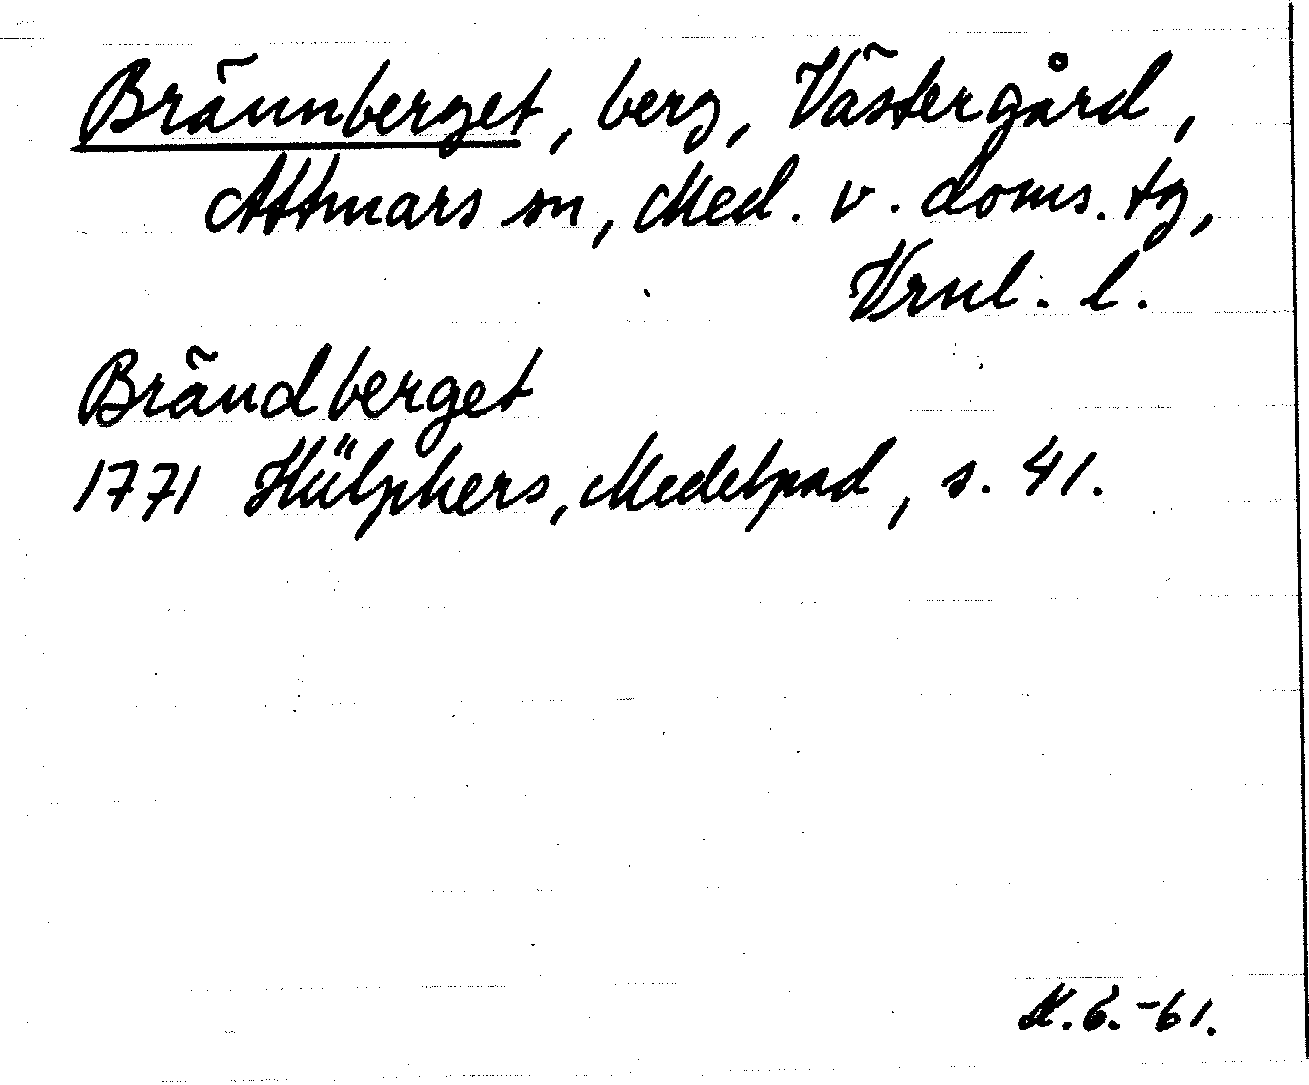 Brännberget, berg, Västergård,
Attmars sn, Med. v. doms. tg,
Vrnl. l.
Brändberget
1771 Hülphers, Medelpad, s. 41.
-61.